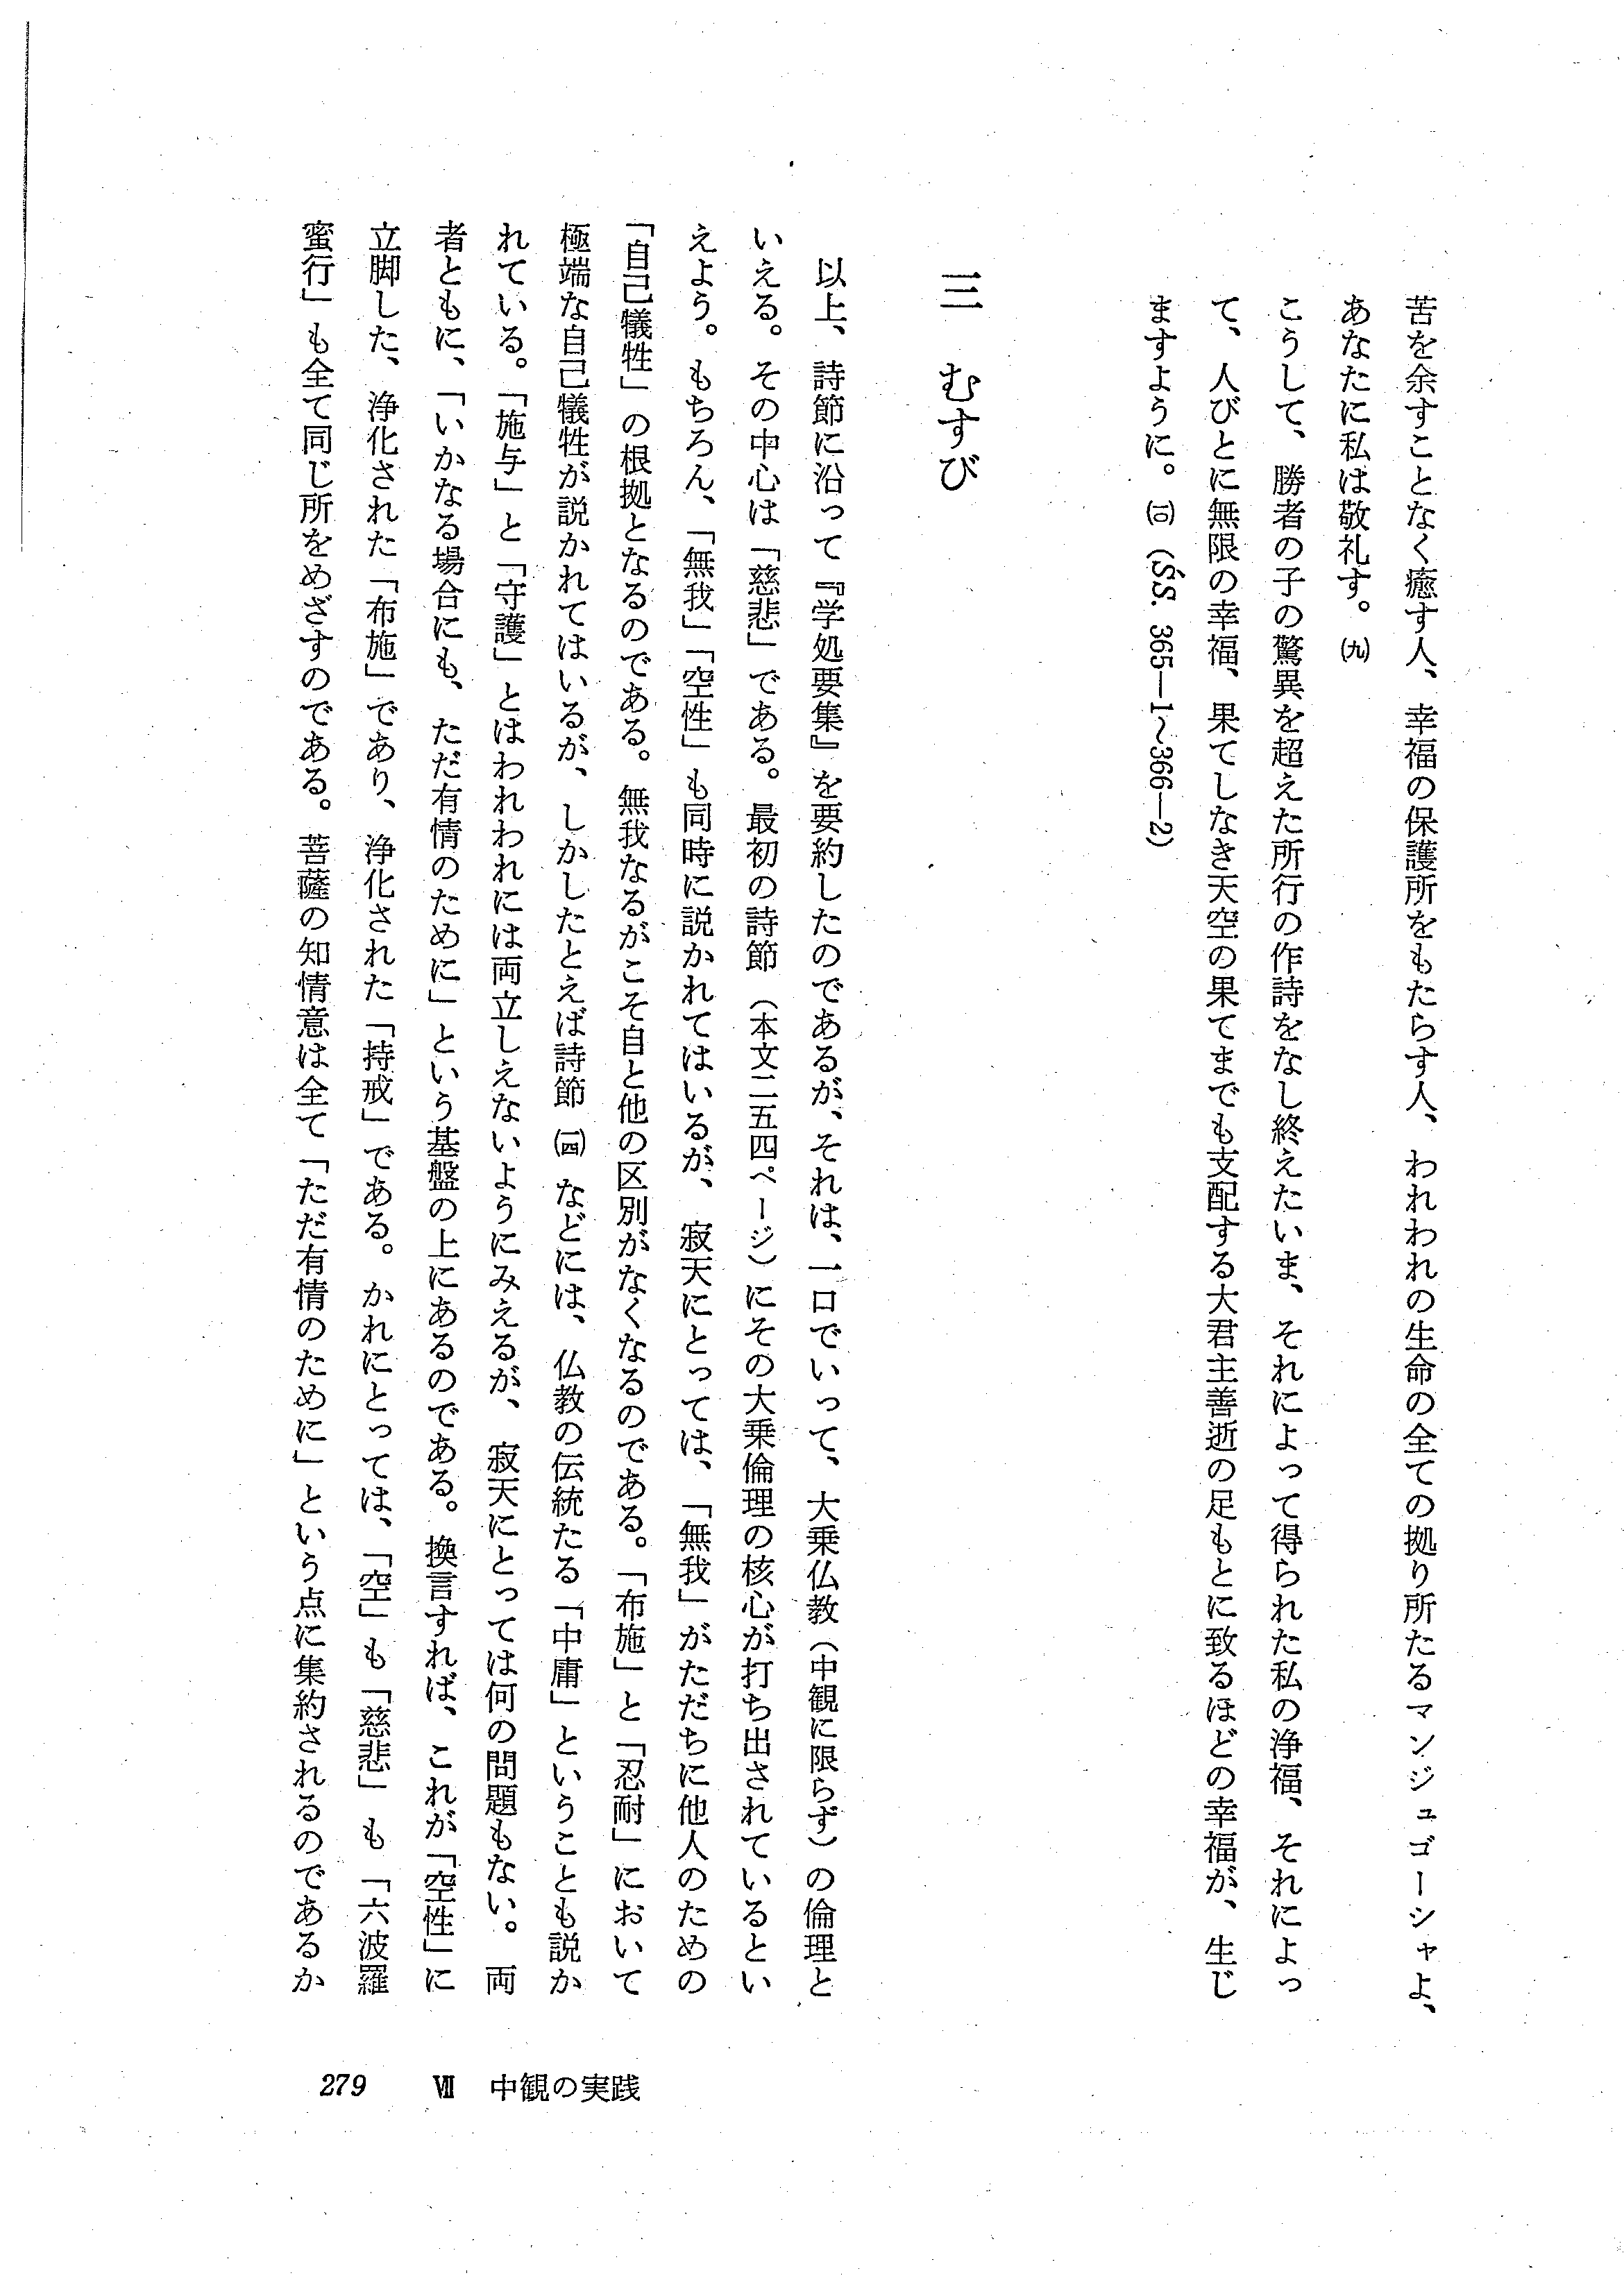 苦を余すことなく癒す人、幸福の保護所をもたらす人、われわれの生命の全ての拠り所たるマンジュゴーシャよ、
あなたに私は敬礼す。㈨
こうして、勝者の子の驚異を超えた所行の作詩をなし終えたいま、それによって得られた私の浄福、それによっ
て、人びとに無限の幸福、果てしなき天空の果てまでも支配する大君主善逝の足もとに致るほどの幸福が、生じ
ますように。(一〇)(ŚS. 365—1〜366—2)
三　むすび
以上、詩節に沿って『学処要集』を要約したのであるが、それは、一口でいって、大乗仏教(中観に限らず)の倫理と
いえる。その中心は「慈悲」である。最初の詩節(本文二五四ページ)にその大乗倫理の核心が打ち出されているとい
えよう。もちろん、「無我」「空性」も同時に説かれてはいるが、寂天にとっては、「無我」がただちに他人のための
「自己犠牲」の根拠となるのである。無我なるがこそ自と他の区別がなくなるのである。「布施」と「忍耐」において
極端な自己犠牲が説かれてはいるが、しかしたとえば詩節(一四)などには、仏教の伝統たる「中庸」ということも説か
れている。「施与」と「守護」とはわれわれには両立しえないようにみえるが、寂天にとっては何の問題もない。両
者ともに、「いかなる場合にも、ただ有情のために」という基盤の上にあるのである。換言すれば、これが「空性」に
立脚した、浄化された「布施」であり、浄化された「持戒」である。かれにとっては、「空」も「慈悲」も「六波羅
蜜行」も全て同じ所をめざすのである。菩薩の知情意は全て「ただ有情のために」という点に集約されるのであるか
279　Ⅶ　中観の実践